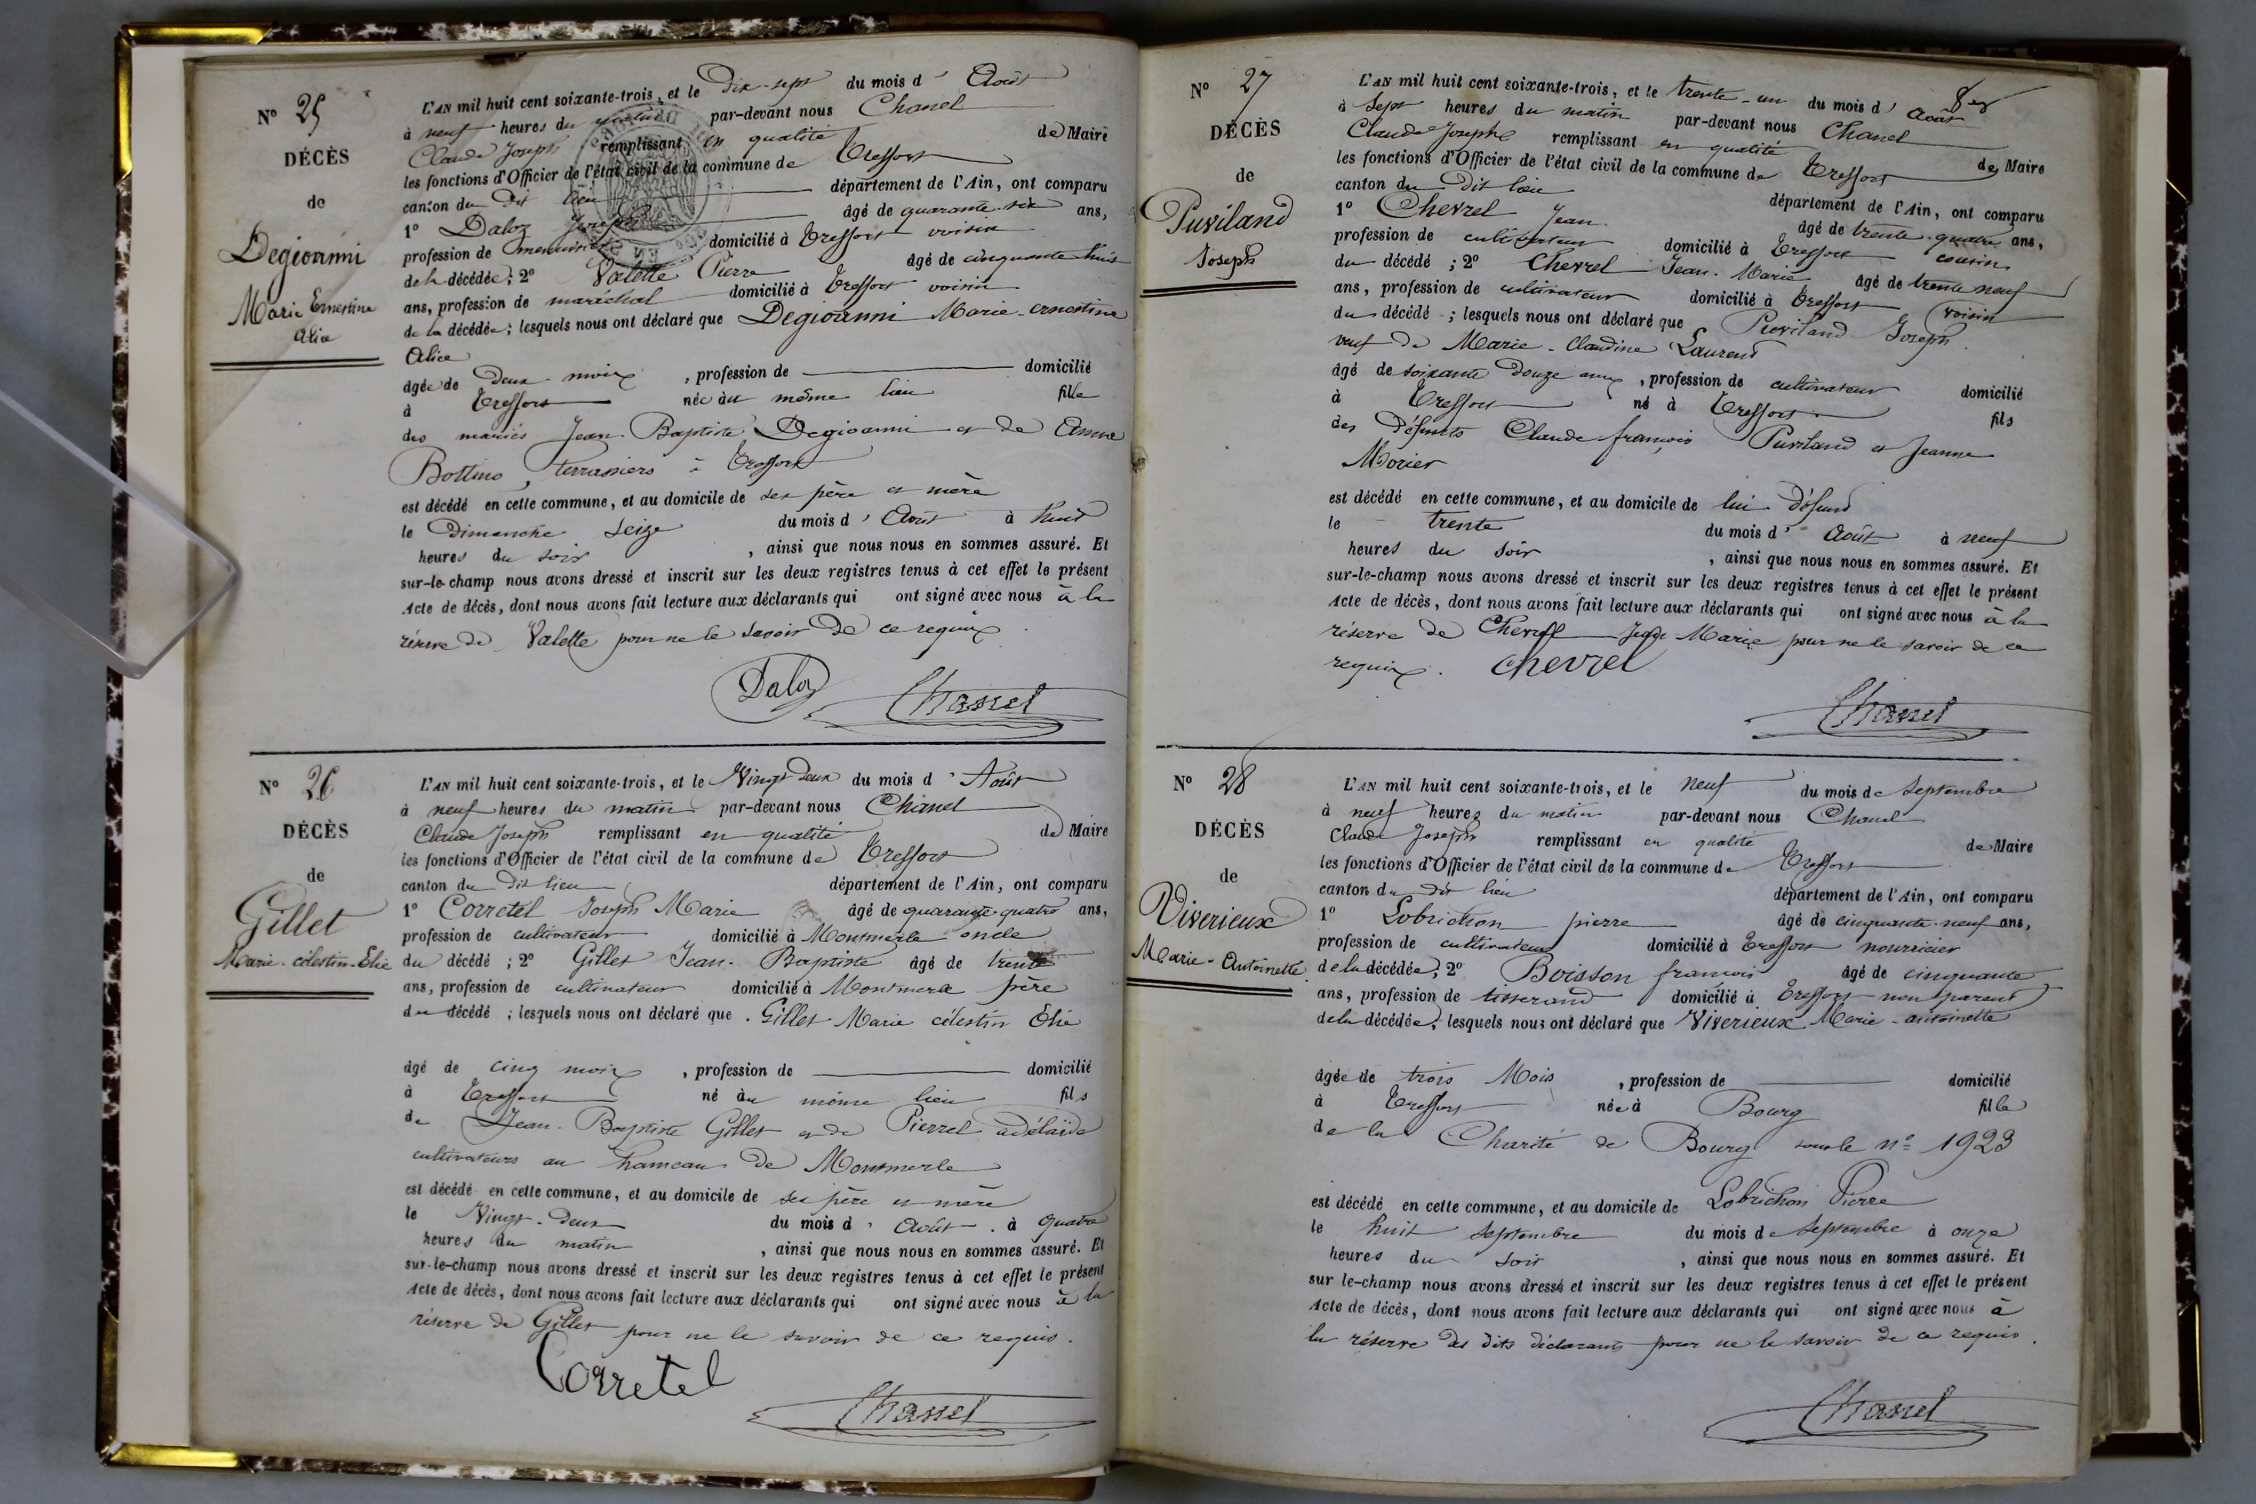 N° 25
DÉCÈS
de
Degioanni
Marie Ernestine
Alice
L'AN mil huit cent soixante-trois, et le Dix-sept du mois d' Août
à neuf heures du matin par-devant nous Chanel
Claude Joseph remplissant en qualité de Maire
les fonctions d'Officier de l'état civil de la commune de Treffort
canton du Dit lieu département de l'Ain, ont comparu
1° Daloz Joseph âgé de quarante-six ans,
profession de menuisier domicilié à Treffort voisin
de la décédée; 2° Valette Pierre âgé de cinquante huit
ans, profession de maréchal domicilié à Treffort voisin
de la décédée; lesquels nous ont déclaré que Degioanni Marie-ernestine
Alice
âgée de Deux mois, profession de domicilié
à Treffort née au même lieu fille
des mariés Jean-Baptiste Degioanni et de Anna
Bottino, terrassiers à Treffort
est décédé en cette commune, et au domicile de ses père et mère
le Dimanche Seize du mois d' Août à huit
heures du soir, ainsi que nous nous en sommes assuré. Et
sur-le-champ nous avons dressé et inscrit sur les deux registres tenus à cet effet le présent
Acte de décès, dont nous avons fait lecture aux déclarants qui ont signé avec nous à la
réserve de Valette pour ne le savoir de ce requis.
Daloz Chanel
N° 26
DÉCÈS
de
Gillet
Marie-célestin-Elie
L'AN mil huit cent soixante-trois, et le Vingt-Deux du mois d' Août
à neuf heures du matin par-devant nous Chanel
Claude Joseph remplissant en qualité de Maire
les fonctions d'Officier de l'état civil de la commune de Treffort
canton du Dit lieu département de l'Ain, ont comparu
1° Corretel Joseph Marie âgé de quarante-quatre ans,
profession de cultivateur domicilié à Montmerle oncle
du décédé; 2° Gillet Jean-Baptiste âgé de trente
ans, profession de cultivateur domicilié à Montmerle père
du décédé; lesquels nous ont déclaré que Gillet Marie célestin Elie
âgé de cinq mois, profession de domicilié
à Treffort né au même lieu fils
de Jean-Baptiste Gillet et de Pierrel adélaïde
cultivateurs au hameau de Montmerle
est décédé en cette commune, et au domicile de ses père et mère
le Vingt-Deux du mois d' Août à quatre
heures du matin, ainsi que nous nous en sommes assuré. Et
sur-le-champ nous avons dressé et inscrit sur les deux registres tenus à cet effet le présent
Acte de décès, dont nous avons fait lecture aux déclarants qui ont signé avec nous à la
réserve de Gillet pour ne le savoir de ce requis.
Corretel
Chanel
N° 27
DÉCÈS
de
Puviland
Joseph
L'AN mil huit cent soixante-trois, et le trente-un du mois d' Août
à Sept heures du matin par-devant nous Chanel
Claude Joseph remplissant en qualité de Maire
les fonctions d'Officier de l'état civil de la commune de Treffort
canton du Dit lieu département de l'Ain, ont comparu
1° Chevrel Jean âgé de trente-quatre ans,
profession de cultivateur domicilié à Treffort cousin
du décédé; 2° Chevrel Jean-Marie âgé de trente neuf
ans, profession de cultivateur domicilié à Treffort voisin
du décédé; lesquels nous ont déclaré que Puviland Joseph
veuf de Marie-Claudine Laurent
âgé de soixante Douze ans, profession de cultivateur domicilié
à Treffort né à Treffort fils
des Défunts Claude françois Puviland et Jeanne
Morier
est décédé en cette commune, et au domicile de lui Défunt
le trente du mois d' Août à neuf
heures du soir, ainsi que nous nous en sommes assuré. Et
sur-le-champ nous avons dressé et inscrit sur les deux registres tenus à cet effet le présent
Acte de décès, dont nous avons fait lecture aux déclarants qui ont signé avec nous à la
réserve de Chevrel Jean Marie pour ne le savoir de ce
requis. Chevrel
Chanel
N° 28
DÉCÈS
de
Viverieux
Marie-Antoinette
L'AN mil huit cent soixante-trois, et le neuf du mois de Septembre
à neuf heures du matin par-devant nous Chanel
Claude Joseph remplissant en qualité de Maire
les fonctions d'Officier de l'état civil de la commune de Treffort
canton du dit lieu département de l'Ain, ont comparu
1° Lobrichon pierre âgé de cinquante-neuf ans,
profession de cultivateur domicilié à Treffort nourricier
de la décédée; 2° Boisson françois âgé de cinquante
ans, profession de tisserand domicilié à Treffort non parent
de la décédée; lesquels nous ont déclaré que Viverieux Marie-antoinette
âgée de trois Mois, profession de domicilié
à Treffort née à Bourg fille
de la Charité de Bourg sous le n° 1923
est décédé en cette commune, et au domicile de Lobrichon Pierre
le huit septembre du mois de Septembre à onze
heures du soir, ainsi que nous nous en sommes assuré. Et
sur le-champ nous avons dressé et inscrit sur les deux registres tenus à cet effet le présent
Acte de décès, dont nous avons fait lecture aux déclarants qui ont signé avec nous à
la réserve des dits déclarants pour ne le savoir de ce requis.
Chanel